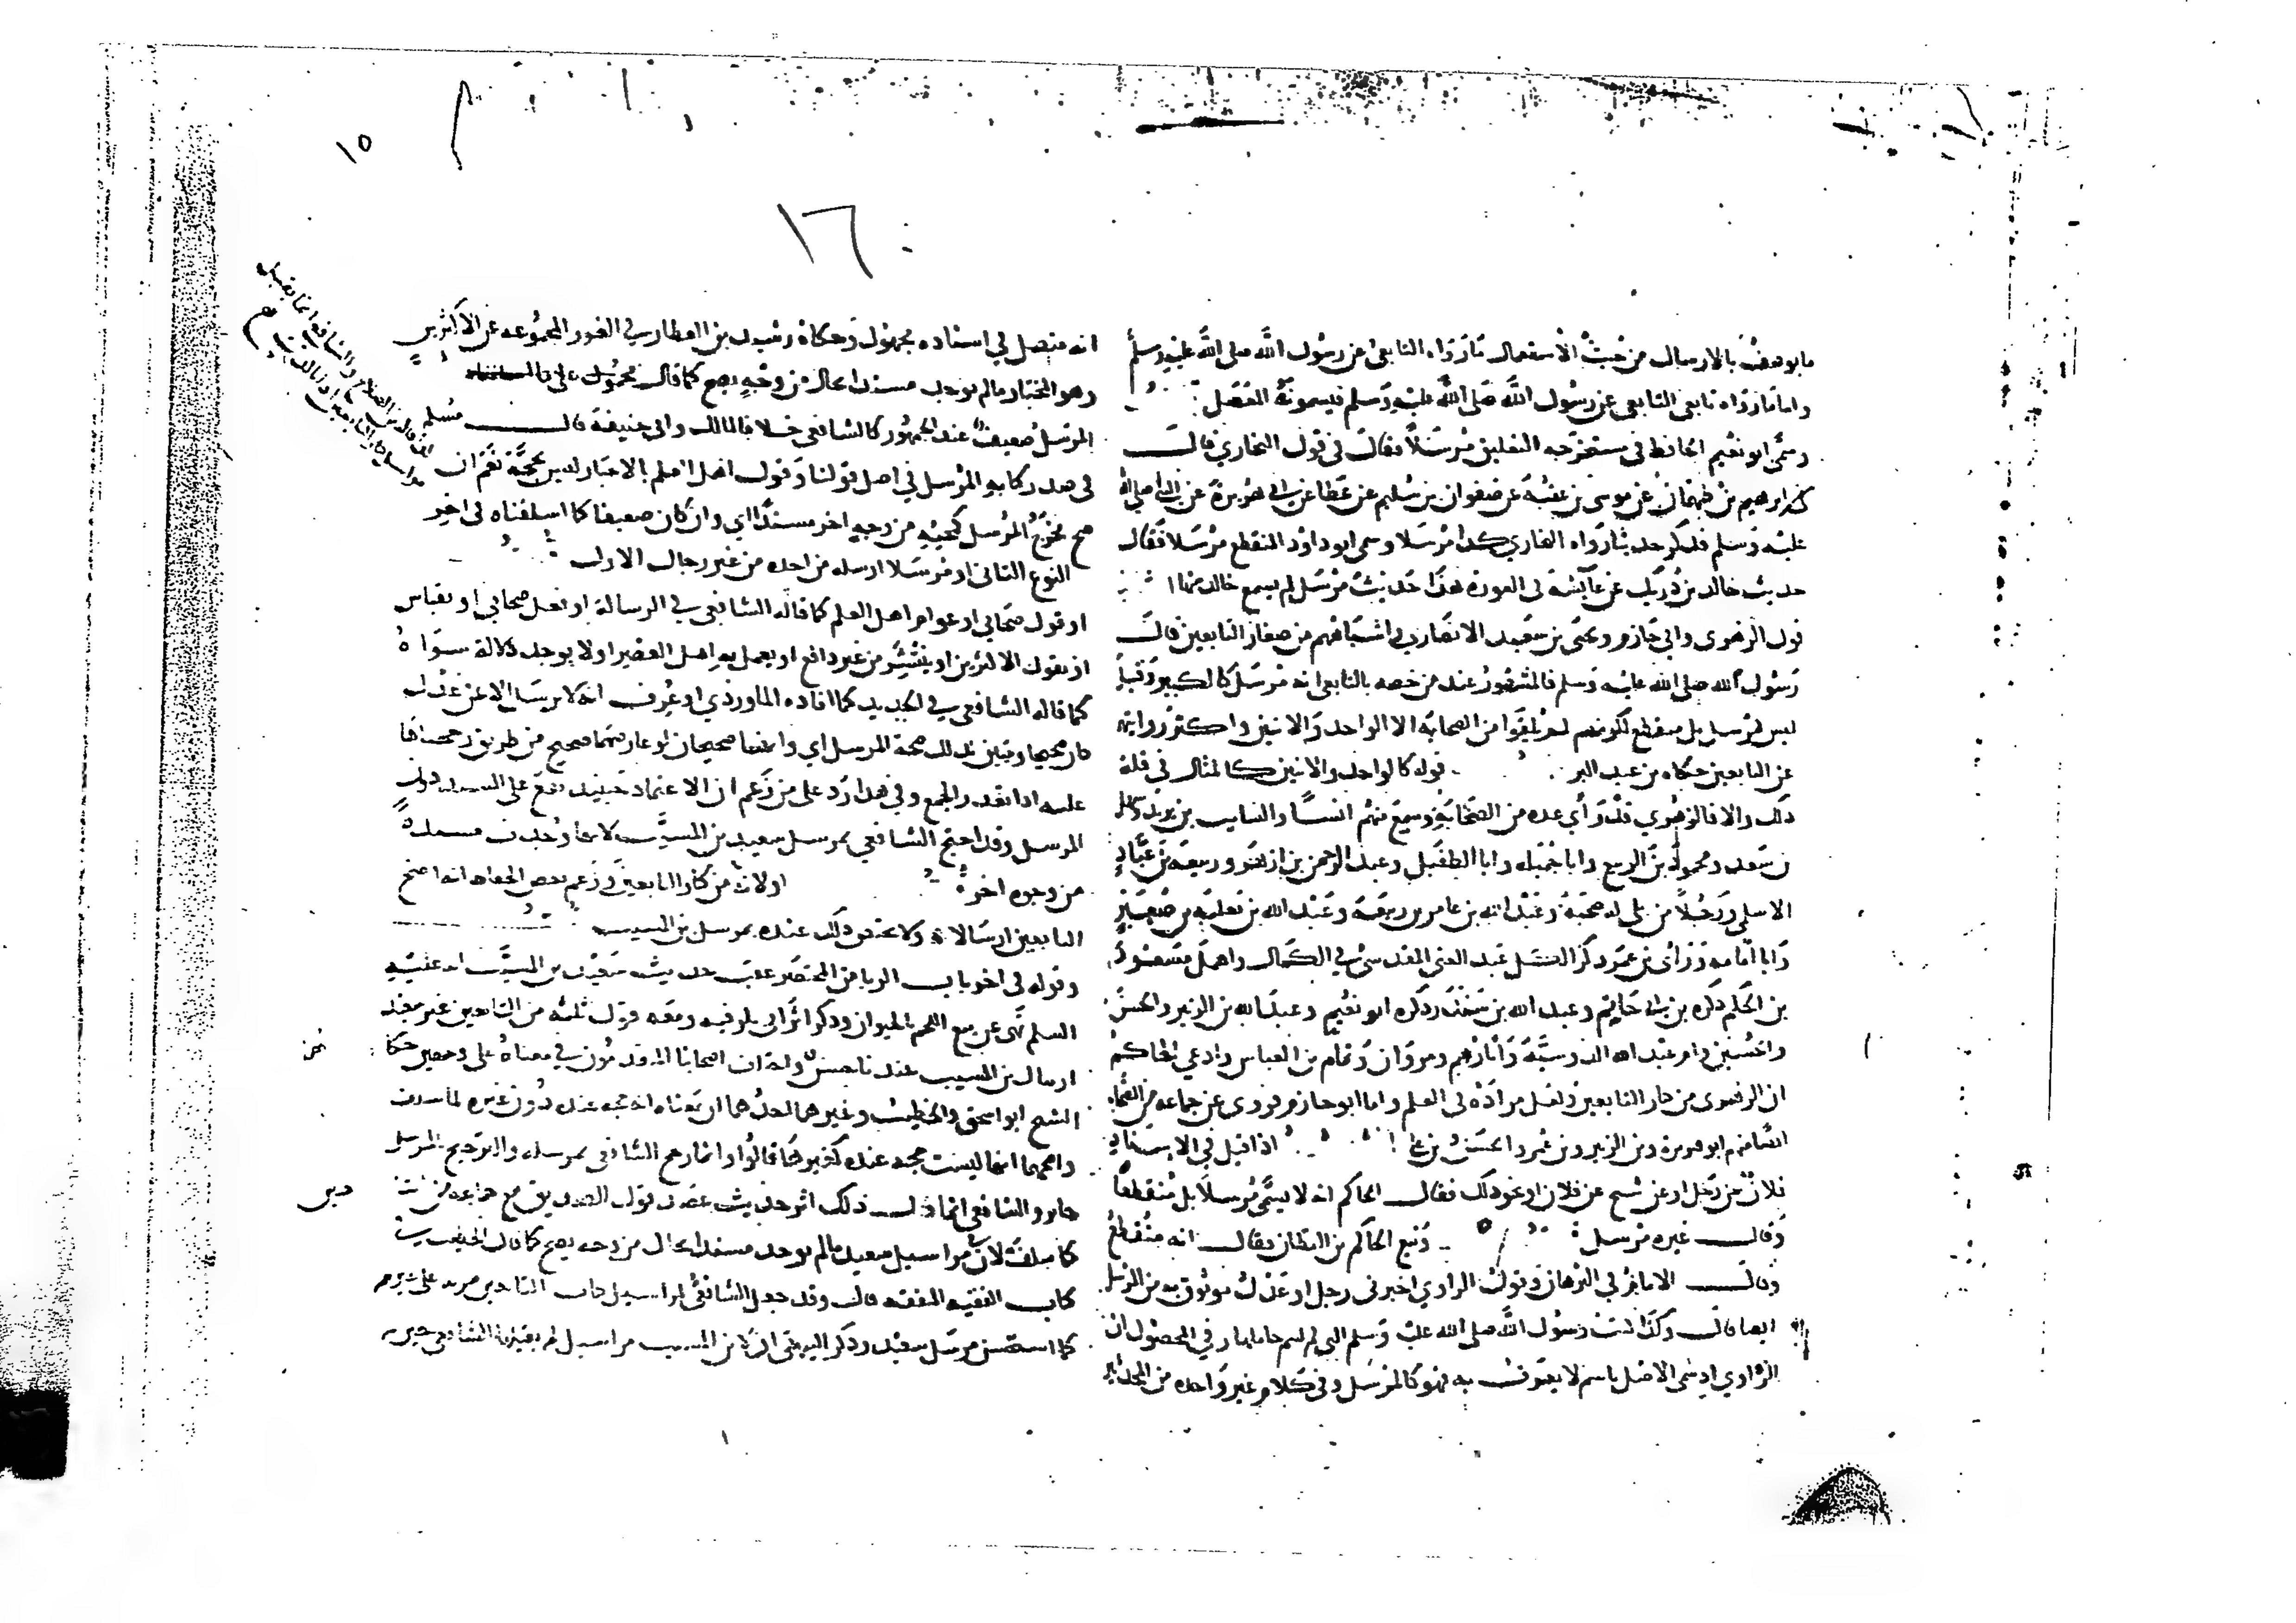 ١٥
١٦
ما يوصف بالارسال من حيث الاستعمال ما رواه التابعي عن رسول الله صلى الله عليه وسلم
واما ما رواه تابعي التابعي عن رسول الله صلى الله عليه وسلم فيسمونه المعضل
وسمى ابو نعيم الحافظ في مستخرجه التعليق مرسلا فقال في قول البخاري قال
ابرهيم بن طهمان عن موسى بن عقبة عن صفوان بن سليم عن عطا عن ابي هريرة عن النبي صلى الله
عليه وسلم فذكر حديثا رواه البخاري كذا مرسلا وسمى ابو داود المنقطع مرسلا فقال
حديث خالد بن دريك عن عايشة في العورة هذا حديث مرسل لم يسمع خالد منها
قول الزهري وابي حازم ويحيى بن سعيد الانصاري واشباههم من صغار التابعين قال
رسول الله صلى الله عليه وسلم فالمشهور عند من خصه بالتابعي انه مرسل كالكبير وقيل
ليس بمرسل بل منقطع لكونهم لم يلقوا من الصحابة الا الواحد والاثنين واكثر روايتهم
عن التابعين حكاه بن عبد البر قوله كالواحد والاثنين كالمثال في قلة
ذلك والا فالزهري قد راى عدة من الصحابة وسمع منهم انسا والسايب بن يزيد وسهل
بن سعد ومحمود بن الربيع وابا جميلة وابا الطفيل وعبد الرحمن بن ازهر وربيعة بن عباد
الاسلمي ورجلا من بلي له صحبة وعبد الله بن عامر بن ربيعة وعبد الله بن ثعلبة بن صعير
وابا امامة وراى بن عمر وذكر عبد الغني المقدسي في الكمال واهمل مسعود
بن الحكم ذكره بن ابي حاتم وعبد الله بن ذكره ابو نعيم وعبد الله بن الزبير والحسن
والحسين وام عبد الله الدوسية ومروان وتمام بن العباس وادعى الحاكم
ان الزهري من كبار التابعين ولعل مراده في العلم واما ابو حازم فروى عن جماعة من الصحابة
ايضا منهم ابو هريرة وبن الزبير وبن عمر والحسن بن علي اذا قيل في الاسناد
فلان عن رجل او عن شيخ عن فلان او نحو ذلك فقال الحاكم انه لا يسمى مرسلا بل منقطعا
وقال غيره مرسل وتبع الحاكم بن القطان فقال انه منقطع
وقال الامام في البرهان وقول الراوي اخبرني رجل او عدل موثوق به من المرسل
ايضا قال وكذا كتب رسول الله صلى الله عليه وسلم التي لم يسم حاملها وفي المحصول ان
الراوي اذا سمى الاصل باسم لا يعرف به فهو كالمرسل وفي كلام غير واحد من المحدثين
انه متصل في اسناده مجهول وحكاه رشيد بن العطار في الغرر المجموعة عن الاكثرين
وهو المختار ما لم يوجد مسندا بحال من وجه يصح كما قال محمول على
المرسل ضعيف عند الجمهور كالشافعي خلافا لمالك وابي حنيفة قال مسلم
في صدر كتابه المرسل في اصل قولنا وقول اهل العلم بالاخبار ليس بحجة نعم ان
صح مخرج المرسل كمجيئه من وجه اخر مسندا اي وان كان ضعيفا كما اسلفناه في اخر
النوع الثاني او مرسلا ارسله من اخذ من غير رجال الاول
او قول صحابي او عوام اهل العلم كما قاله الشافعي في الرسالة او فعل صحابي او بقياس
او بقول الاكثرين او ينتشر من غير دافع او يعمل به اهل العصر او لا يوجد دلالة سواه
كما قاله الشافعي في الجديد كما افاده الماوردي او عرف انه لا يرسل الا عن عدل
كان صحيحا وتبين بذلك صحة المرسل اي وانهما صحيحان لو عارضهما صحيح من طريق رجحناهما
عليه اذا تعذر الجمع وفي هذا رد على من زعم ان الاعتماد حينيذ يقع على المسند دون
المرسل وقد احتج الشافعي بمرسل سعيد بن المسيب لانها وجدت مسندة
من وجوه اخر او لانه من كبار التابعين وزعم بعض الحفاظ انه اصح
التابعين ارسالا ولا يختص ذلك عنده بمرسل بن المسيب
وقوله في اخر باب الربا من المختصر عقب حديث سعيد بن المسيب انه عليه
السلم نهى عن بيع اللحم بالحيوان وذكر اثر ابي بكر فيه ومعه قول ثلثة من التابعين غير سعيد
ارسال بن المسيب عندنا حسن وله ان اصحابنا المتقدمون في معناه على وجهين حكاهما
الشيخ ابو اسحق والخطيب وغيرهما احدهما ان معناه انه حجة عنده دون غيره لما سلف
واصحهما انها ليست بحجة عنده كغيرها قالوا وانما رجح الشافعي بمرسله والترجيح بالمرسل
جايز والشافعي انما ذلك اثر حديث عضده قول الصديق مع جماعة من
كما سلف لان في مراسيل سعيد ما لم يوجد مسندا بحال من وجه يصح كما قال الخطيب في
كتاب الفقيه والمتفقه قال وقد جعل الشافعي لمراسيل كبار التابعين مزية على غيرهم
كما استحسن مرسل سعيد وذكر البيهقي ان لابن المسيب مراسيل لم يقبلها الشافعي حين